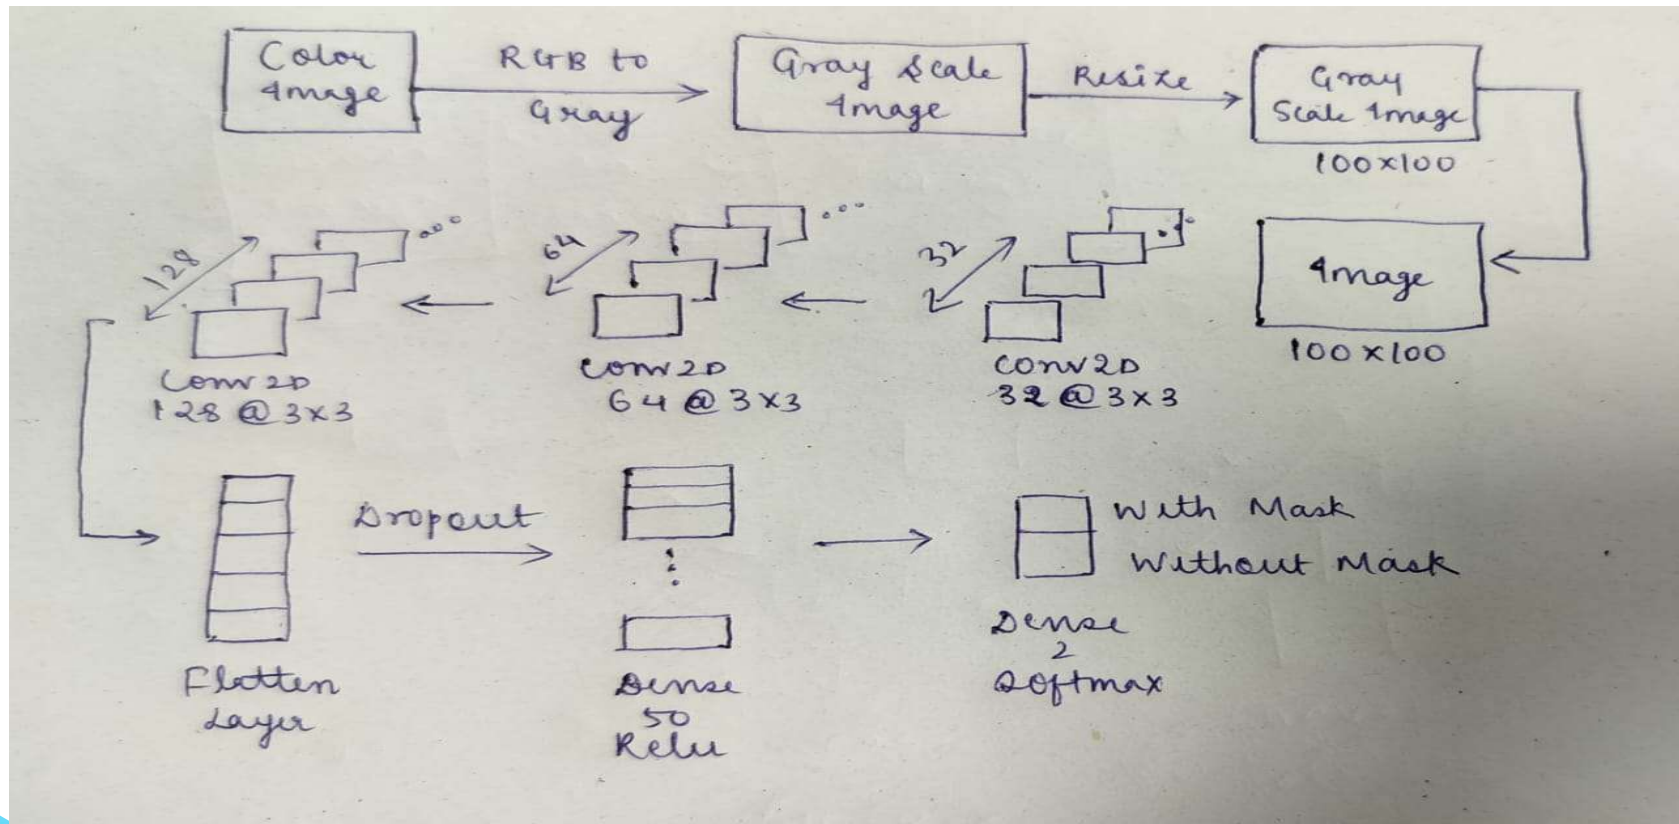 Color
Image
RGB to
Gray
Gray Scale
Image
Resize
Gray
Scale Image
100x100
Image
100x100
32
Conv2D
32 @ 3x3
64
Conv2D
64 @ 3x3
128
Conv2D
128 @ 3x3
Flatten
Layer
Dropout
Dense
50
Relu
With Mask
Without Mask
Dense
2
Softmax